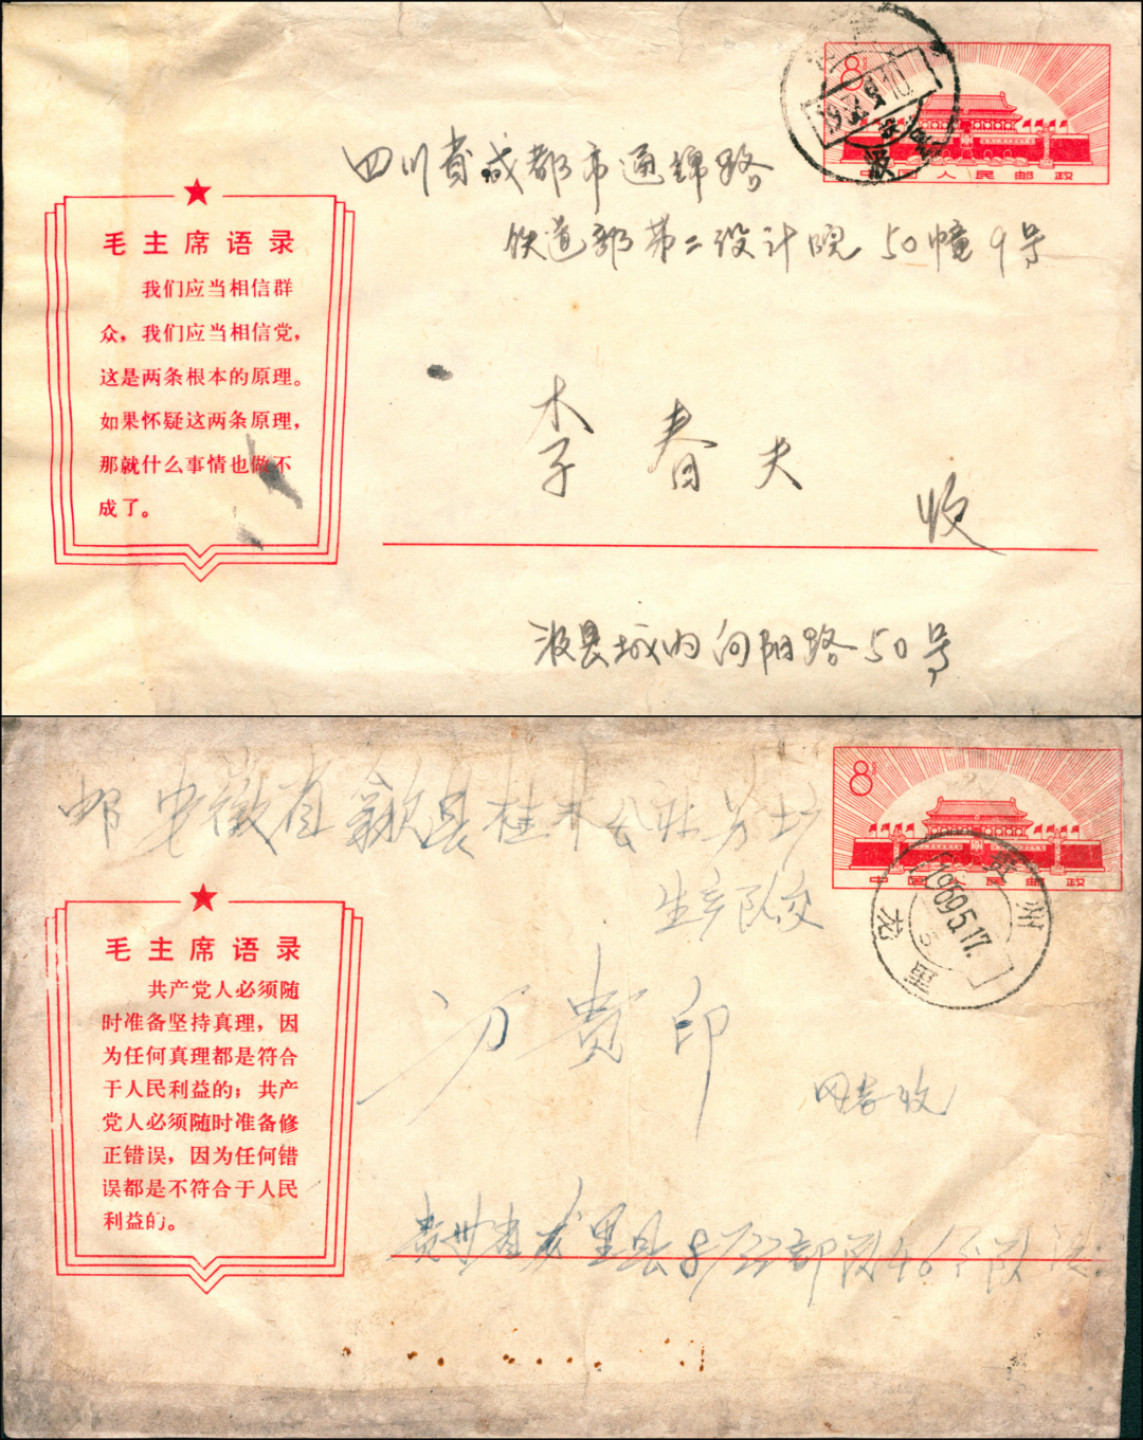 8分
中国人民邮政
四川省成都市通锦路
铁道部第二设计院 50幢9号
毛主席语录
我们应当相信群
众，我们应当相信党，
这是两条根本的原理。
如果怀疑这两条原理，
那就什么事情也做不
成了。
李春夫 收
县城内向阳路50号
8分
中国人民邮政
邮安徽省歙县桂林公社
生产队交
贵州
1969.5.17.
龙里
毛主席语录
共产党人必须随
时准备坚持真理，因
为任何真理都是符合
于人民利益的；共产
党人必须随时准备修
正错误，因为任何错
误都是不符合于人民
利益的。
方贵印
收
贵州省龙里县8722部队46分队